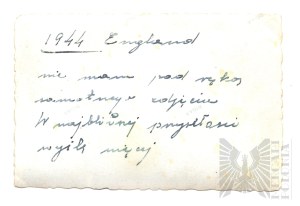 1944 England
nie mam pod ręką
samotnego zdjęcia
W najbliższej przyszłości
wyślę więcej